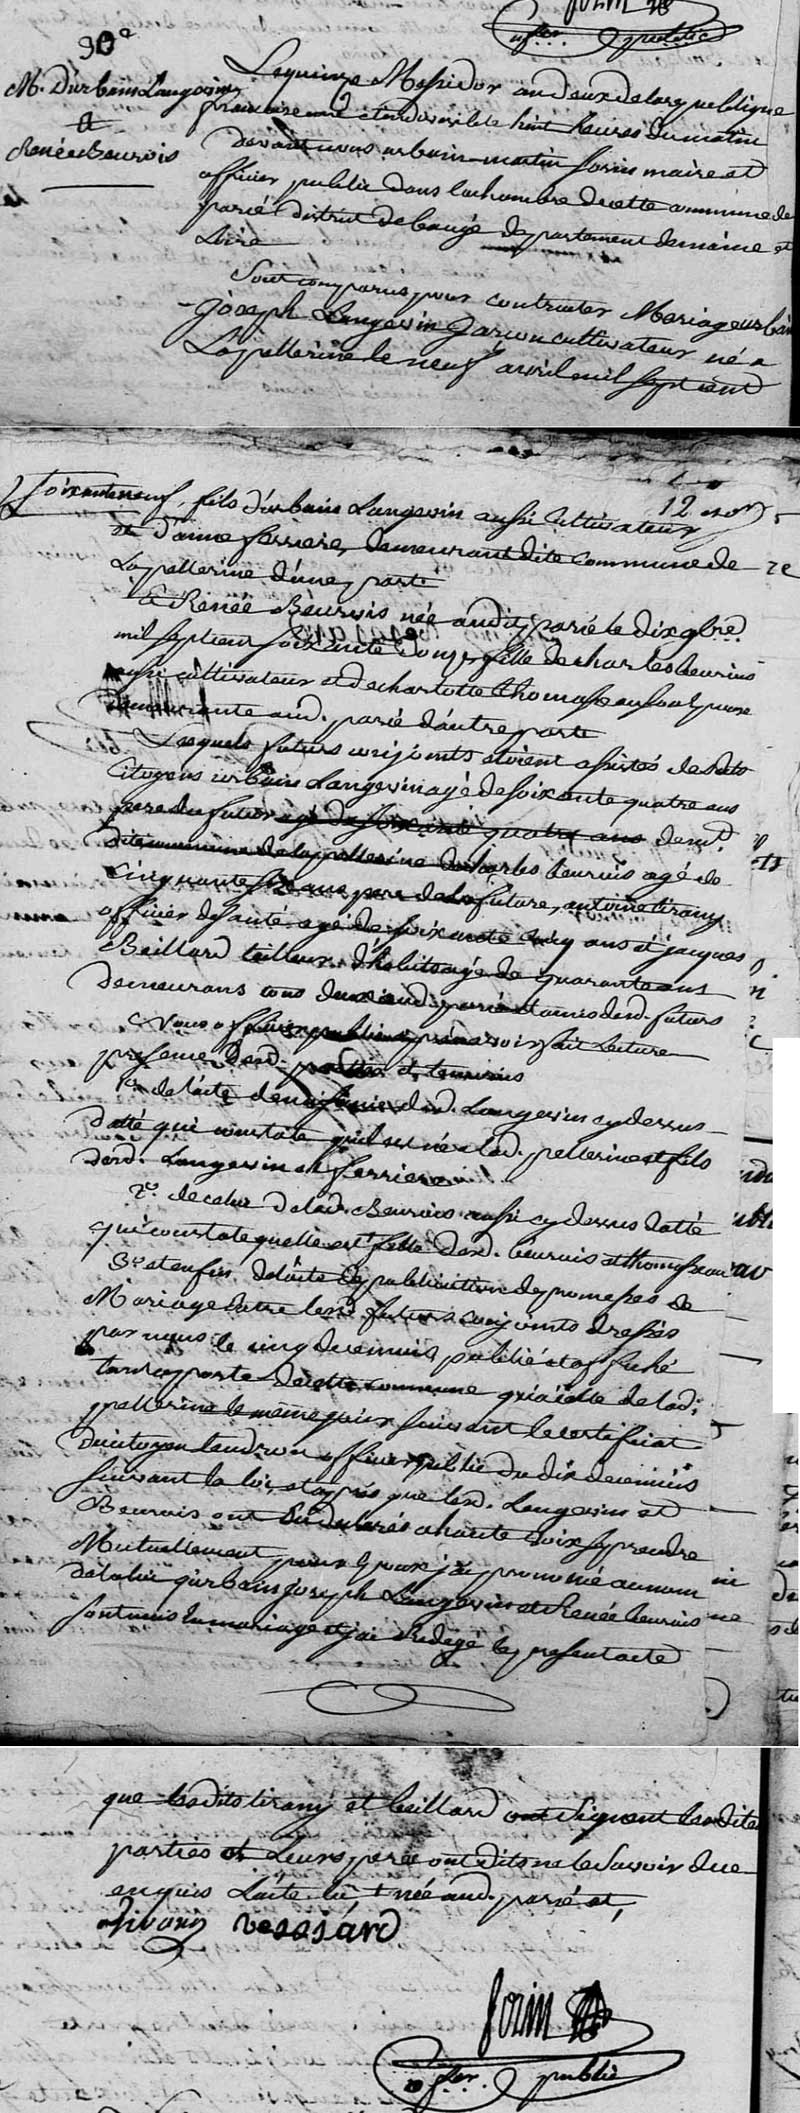 offer. public
30e
M. D'urbain Langevin
et
Renée Beurois
Le quinze Messidor an deux de la republique
francaise une et indivisible huit heures du matin
devant nous urbain martin forin maire et
officier public dans la chambre de cette commune de
parié district de baugé departement de maine et
Loire
Sont comparus pour contracter Mariage urbain
joseph Langevin garcon cultivateur né a
Lapellerine le neuf avril mil sept cent
12
soixante neuf, fils d'urbain Langevin aussi cultivateur
et d'anne ferriere, demeurant dite commune de
Lapellerine d'une part
Et Renée Beurois née audit parié le dix 9bre
mil sept cent soixante douze fille de charles beurois
aussi cultivateur et de charlotte thomasseau son epouse
demeurante aud. parié d'autre part
Lesquels futurs conjoints etoient assistés desdits
Citoyens urbain Langevin agé de soixante quatre ans
pere du futur agé de soixante quatre ans demt.
dite commune de lapellerine de charles beurois agé de
cinquante six ans pere de la future, antoine tirany
officier de santé agé de soixante cinq ans et jacques
Beillard tailleur d'habits agé de quarante ans
demeurans tous deux audit parié et amis desd. futurs
Nous officier public apres avoir fait Lecture en
presence desd. parties et temoins
1o. de l'acte de naissance dud. Langevin cy dessus
datté qui constate qu'il est né a lad. pellerine et fils
desd. Langevin et ferriere
2o. de celui de lad. Beurois aussi cy dessus datté
qui constate quelle est fille desd. beurois et thomasseau
3o. et enfin de l'acte de publication de promesses de
Mariage entre lesd. futurs conjoints dressés
par nous le cinq du courant, publié et affiché
tant a porte de cette commune qu'a celle de lad.
pellerine le meme jour suivant le certificat
du citoyen landron officier public du dix du courant
suivant la loi, et apres que lesd. Langevin et
Beurois ont eu declarés a haute voix se prendre
Mutuellement pour epoux j'ai prononcé au nom
de la loi qu'urbain joseph Langevin et Renée beurois
sont unis en mariage et j'ai redigé le present acte
que lesdits tirany et beillard ont signé et lesdites
parties et Leurs peres ont dits ne le savoir de ce
enquis L'acte lu + née aud. parié et,
tirany bessiard
forin
offer. public